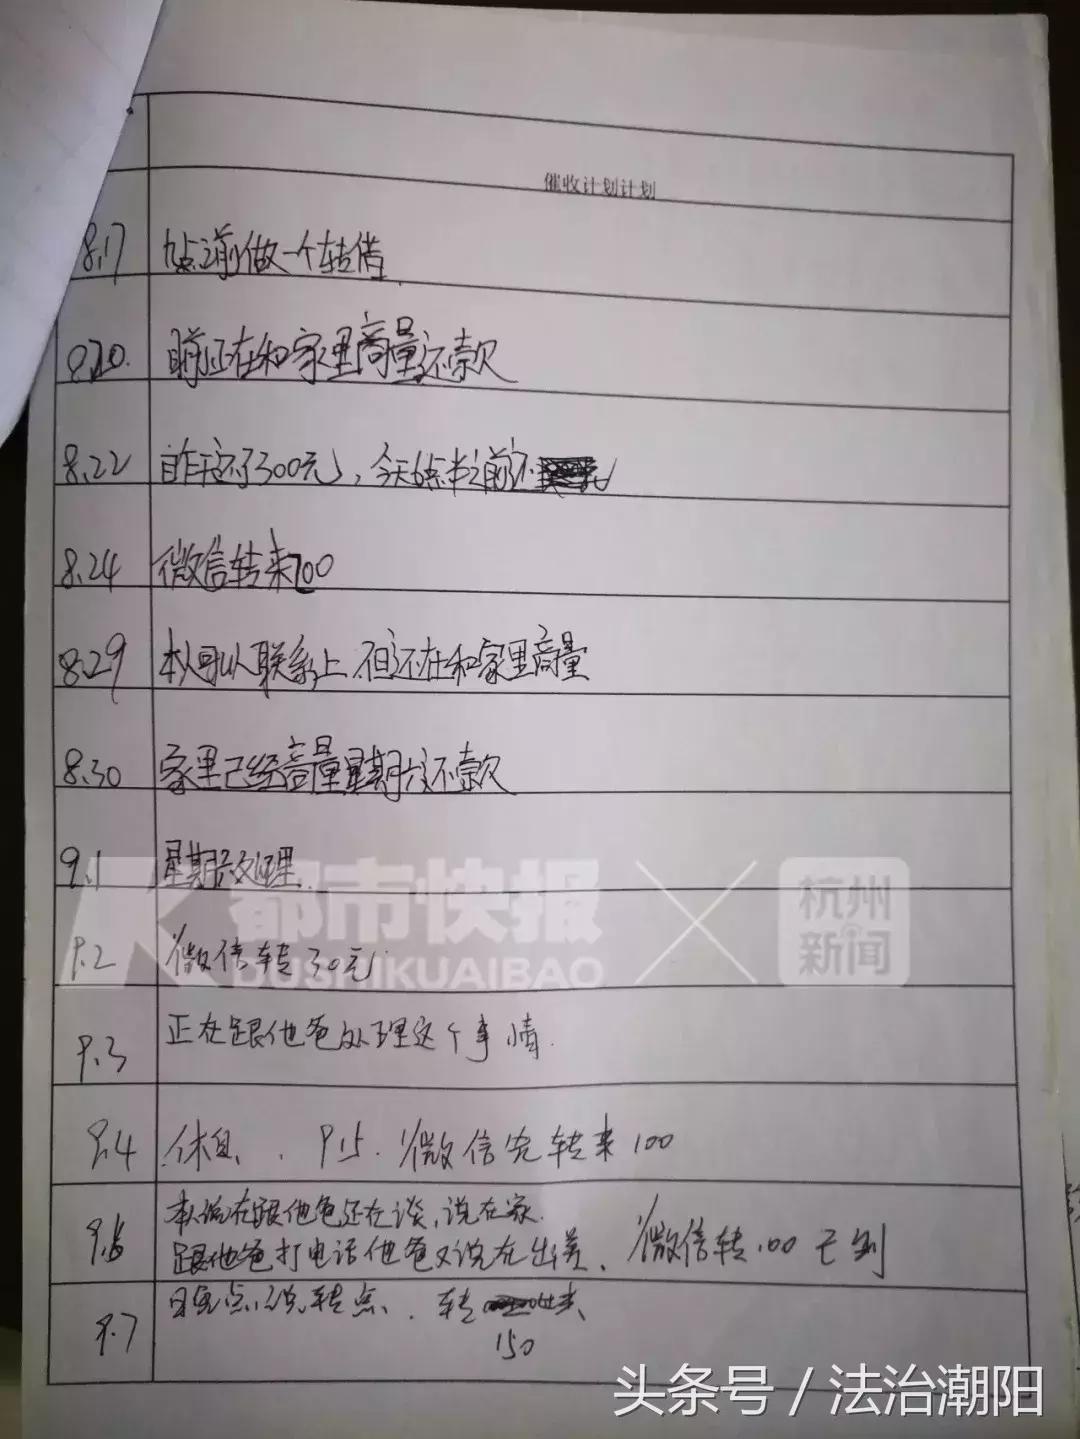 催收计划计划
8.17 九点之前做一个转借
8.20. 目前正在和家里商量还款
8.22 自昨天还了300元，今天6点半之前还
8.24 微信转来200
8.29 本人可以联系上.但还在和家里商量
8.30 家里已经商量星期六还款
9.1 星期六处理.
9.2 微信转30元
9.3 正在跟他爸处理这个事情.
9.4 休息. . 9.5. 微信先转来100
9.6 本人说在跟他爸还在谈,说在家.
跟他爸打电话他爸又说在出差、微信转100已到
9.7 转
150
都市快报
DUSHIKUAIBAO
杭州
新闻
头条号／法治潮阳